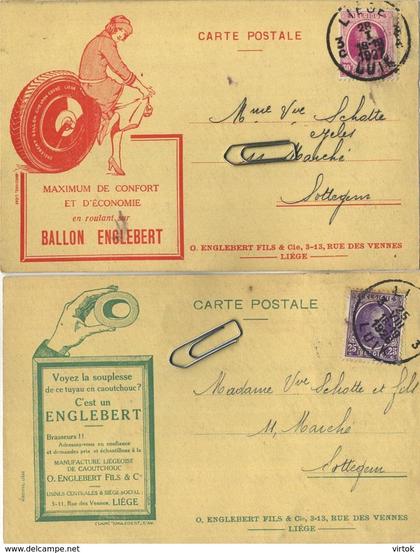 CARTE POSTALE
LIÉGE
28
I
18-19
1927
LUIK
Mme Vve Scholte
11 Marché
Sottegem
MAXIMUM DE CONFORT
ET D'ÉCONOMIE
en roulant sur
BALLON ENGLEBERT
O. ENGLEBERT FILS & Cie, 3-13, RUE DES VENNES
LIÉGE
CARTE POSTALE
25
25
Voyez la souplesse
de ce tuyau en caoutchouc?
C'est un
ENGLEBERT
Brasseurs!!
Adressez-vous en confiance
et demandez prix et échantillons à la
MANUFACTURE LIÉGEOISE
DE CAOUTCHOUC
O. ENGLEBERT FILS & Cie
USINES CENTRALES & SIÈGE SOCIAL:
3-11, Rue des Vennes, LIÉGE
Madame Vve Schotte et fils
11, Marché
Sottegem
O. ENGLEBERT FILS & Cie, 3-13, RUE DES VENNES
LIÉGE